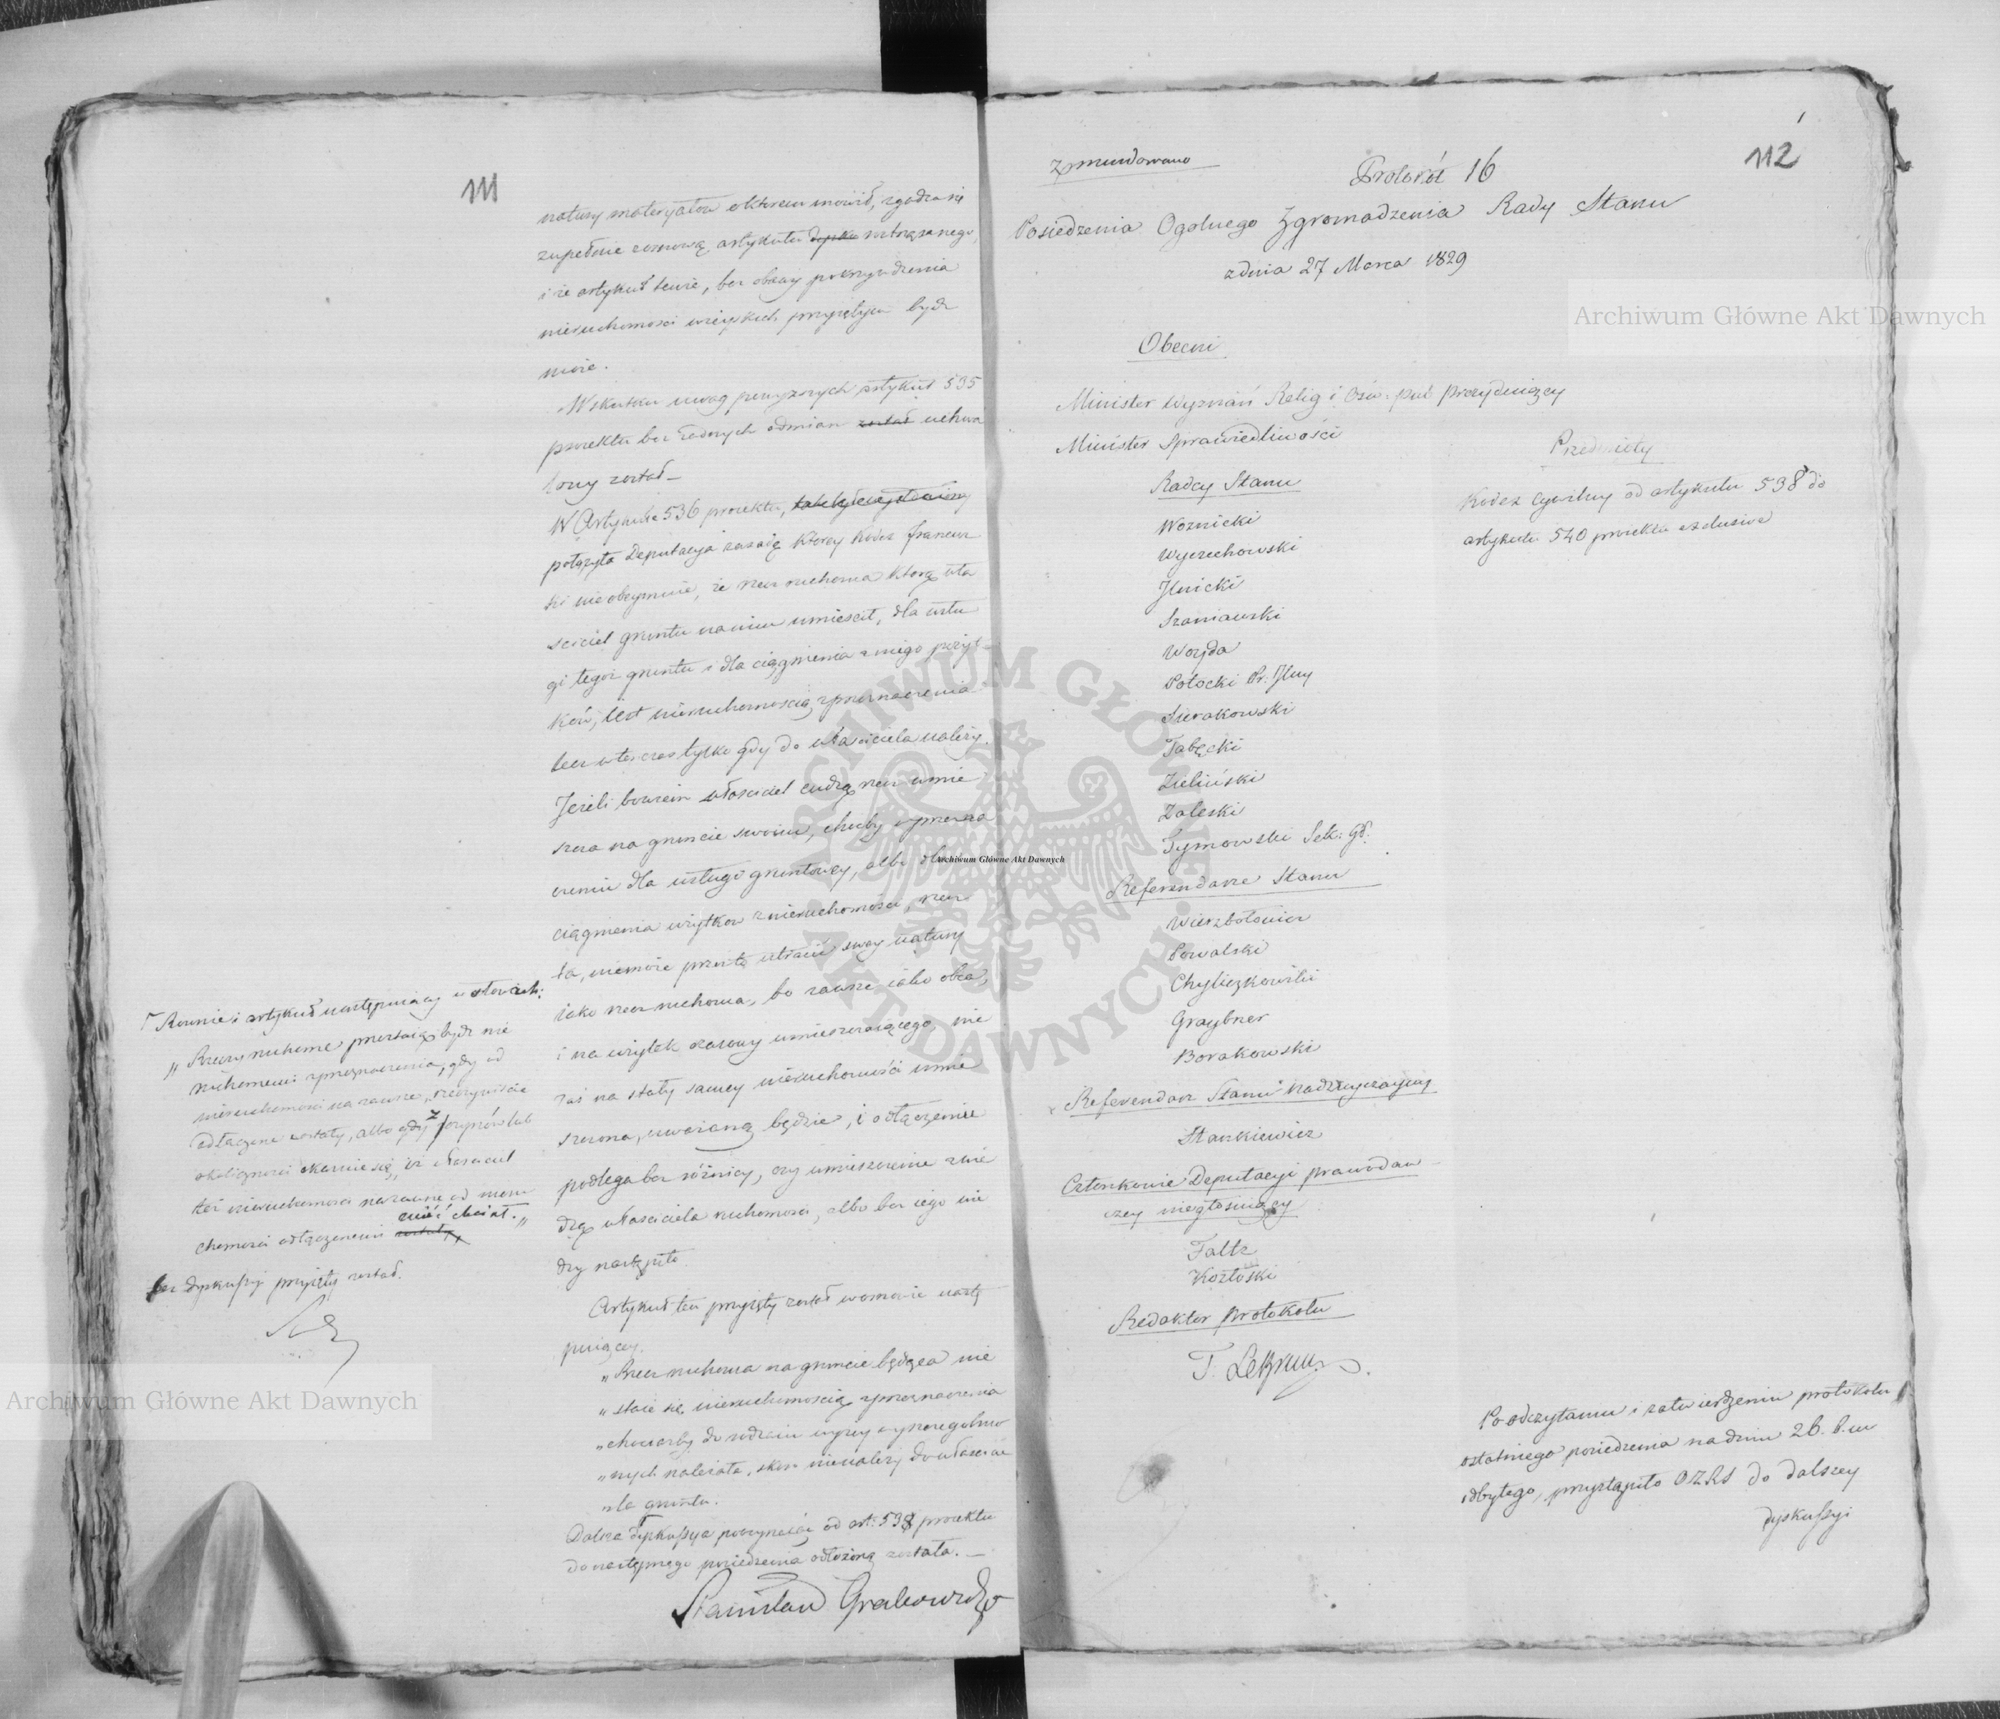 111
natury materyałów o których mówił, zgadza się
zupełnie z osnową artykułu roztrząsanego,
i że artykuł tenże, bez obawy pokrzywdzenia
nieruchomości wieyskich przyiętym bydź
może.
Wskutku uwag powyższych artykuł 535
proiektu bez żadnych odmian został uchwa
lony został
W Artykule 536 proiektu,
połączyła Deputacya zasadę którey Kodex francuz
ki nie obeymuie, że rzecz ruchoma którą wła
ściciel gruntu na nim umieścił, dla usłu
gi tegoż gruntu i dla ciągnienia z niego pożyt
ków, iest nieruchomością z przeznaczenia
lecz wtenczas tylko gdy do właściciela należy.
Jeżeli bowiem właściciel cudzą rzecz umie
szcza na gruncie swoim, choćby w przezna
czeniu dla usługi gruntowey, albo dla
ciągnienia użytków z nieruchomości, rzecz
ta, niemoże przeto utracić swey natury
iako rzecz ruchoma, bo zawsze iako obca,
i na użytek czasowy umieszczaiącego, nie
zaś na stały samey nieruchomości umie
szczona, uważaną będzie, i odłączeniu
podlega bez różnicy, czy umieszczenie z wie
dzą właściciela ruchomości, albo bez iego wie
dzy nastąpiło.
Artykuł ten przyięty został w osnowie nastę
puiącey.
„Rzecz ruchoma na gruncie będąca nie
„staie się nieruchomością z przeznaczenia
„chociażby do rodzaiu wyżey wyszczególnio
„nych należała, skoro nienależy do właścicie
„la gruntu.
Dalsza dyskussya poczynaiąc od art: 538 proiektu
do następnego posiedzenia odłożoną została. —
Stanisław Grabowski
Równie i artykuł następuiący w słowach:
„Rzeczy ruchome przestaią bydź nie
ruchomemi z przeznaczenia, gdy od
nieruchomości na zawsze, rzeczywiście
odłączone zostały, albo gdy z czynów lub
okoliczności okazuie się, iż właściciel
też nieruchomości na zawsze od nieru
chomości odłączonemi mieć chciał.„
bez dyskussyi przyięty został.
112
Zmundowano
Protokół 16
Posiedzenia Ogólnego Zgromadzenia Rady Stanu
z dnia 27 Marca 1829
Obecni
Minister Wyznań Relig i Ośw. pub Prezyduiący
Minister Sprawiedliwości
Radcy Stanu
Woznicki
Wyczechowski
Jlnicki
Szaniawski
Woyda
Potocki Pr. Jlny
Sierakowski
Tabęcki
Zieliński
Zaleski
Tymowski Sek: Gł:
Referendarze Stanu
Wierzbołowicz
Powalski
Chyliczkowski
Graybner
Borakowski
Referendarz Stanu Nadzwyczayny
Stankiewicz
Członkowie Deputacyi prawodaw
czey niegłosuiący
Faltz
Kozłoski
Redaktor protokołu
T. LeBrun
Przedmioty
Kodex Cywilny od artykułu 538 do
artykułu 540 proiektu exclusive
Po odczytaniu i zatwierdzeniu protokołu
ostatniego posiedzenia na dniu 26. b. m
odbytego, przystąpiło OZRS do dalszey
dyskussyi
Archiwum Główne Akt Dawnych
Archiwum Główne Akt Dawnych
Archiwum Główne Akt Dawnych
ARCHIWUM GŁÓWNE AKT DAWNYCH